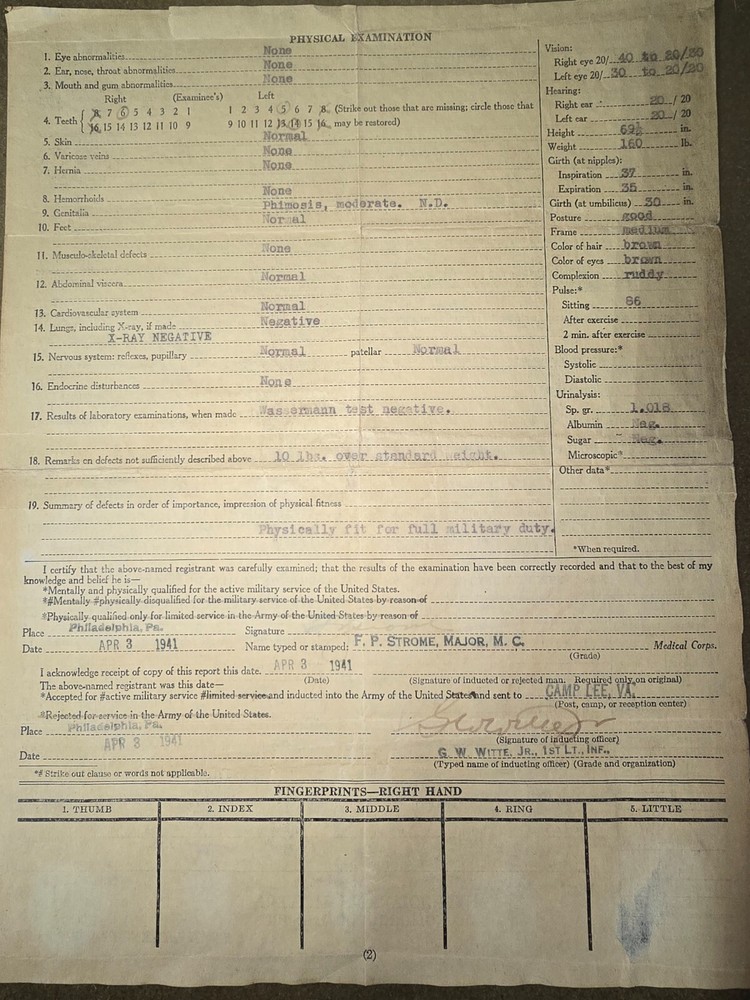 PHYSICAL EXAMINATION
1. Eye abnormalities None
2. Ear, nose, throat abnormalities None
3. Mouth and gum abnormalities None
Right (Examinee's) Left
4. Teeth { 8 7 6 5 4 3 2 1 1 2 3 4 5 6 7 8 (Strike out those that are missing; circle those that
16 15 14 13 12 11 10 9 9 10 11 12 13 14 15 16 may be restored)
5. Skin Normal
6. Varicose veins None
7. Hernia None
8. Hemorrhoids None
9. Genitalia Phimosis, moderate. N.D.
10. Feet Normal
11. Musculo-skeletal defects None
12. Abdominal viscera Normal
13. Cardiovascular system Normal
14. Lungs, including X-ray, if made Negative
X-RAY NEGATIVE
15. Nervous system: reflexes, pupillary Normal patellar Normal
16. Endocrine disturbances None
17. Results of laboratory examinations, when made Wassermann test negative.
18. Remarks on defects not sufficiently described above 10 lbs. over standard weight.
19. Summary of defects in order of importance, impression of physical fitness
Physically fit for full military duty.
Vision:
Right eye 20/ 40 to 20/30
Left eye 20/ 30 to 20/20
Hearing:
Right ear 20 / 20
Left ear 20 / 20
Height 69½ in.
Weight 160 lb.
Girth (at nipples):
Inspiration 37 in.
Expiration 35 in.
Girth (at umbilicus) 30 in.
Posture good
Frame medium
Color of hair brown
Color of eyes brown
Complexion ruddy
Pulse:*
Sitting 86
After exercise
2 min. after exercise
Blood pressure:*
Systolic
Diastolic
Urinalysis:
Sp. gr. 1.018
Albumin Neg.
Sugar Neg.
Microscopic*
Other data*
*When required.
I certify that the above-named registrant was carefully examined; that the results of the examination have been correctly recorded and that to the best of my
knowledge and belief he is—
*Mentally and physically qualified for the active military service of the United States.
*#Mentally #physically disqualified for the military service of the United States by reason of
*Physically qualified only for limited service in the Army of the United States by reason of
Place Philadelphia, Pa. Signature
Date APR 3 1941 Name typed or stamped: F. P. STROME, MAJOR, M. C. Medical Corps.
(Grade)
I acknowledge receipt of copy of this report this date. APR 3 1941
(Date) (Signature of inducted or rejected man. Required only on original)
The above-named registrant was this date—
*Accepted for #active military service #limited service and inducted into the Army of the United States and sent to CAMP LEE, VA.
(Post, camp, or reception center)
*Rejected for service in the Army of the United States.
Place Philadelphia, Pa.
(Signature of inducting officer)
APR 3 1941
Date G. W. WITTE, JR., 1ST LT., INF.,
(Typed name of inducting officer) (Grade and organization)
*# Strike out clause or words not applicable.
FINGERPRINTS—RIGHT HAND
1. THUMB 2. INDEX 3. MIDDLE 4. RING 5. LITTLE
(2)